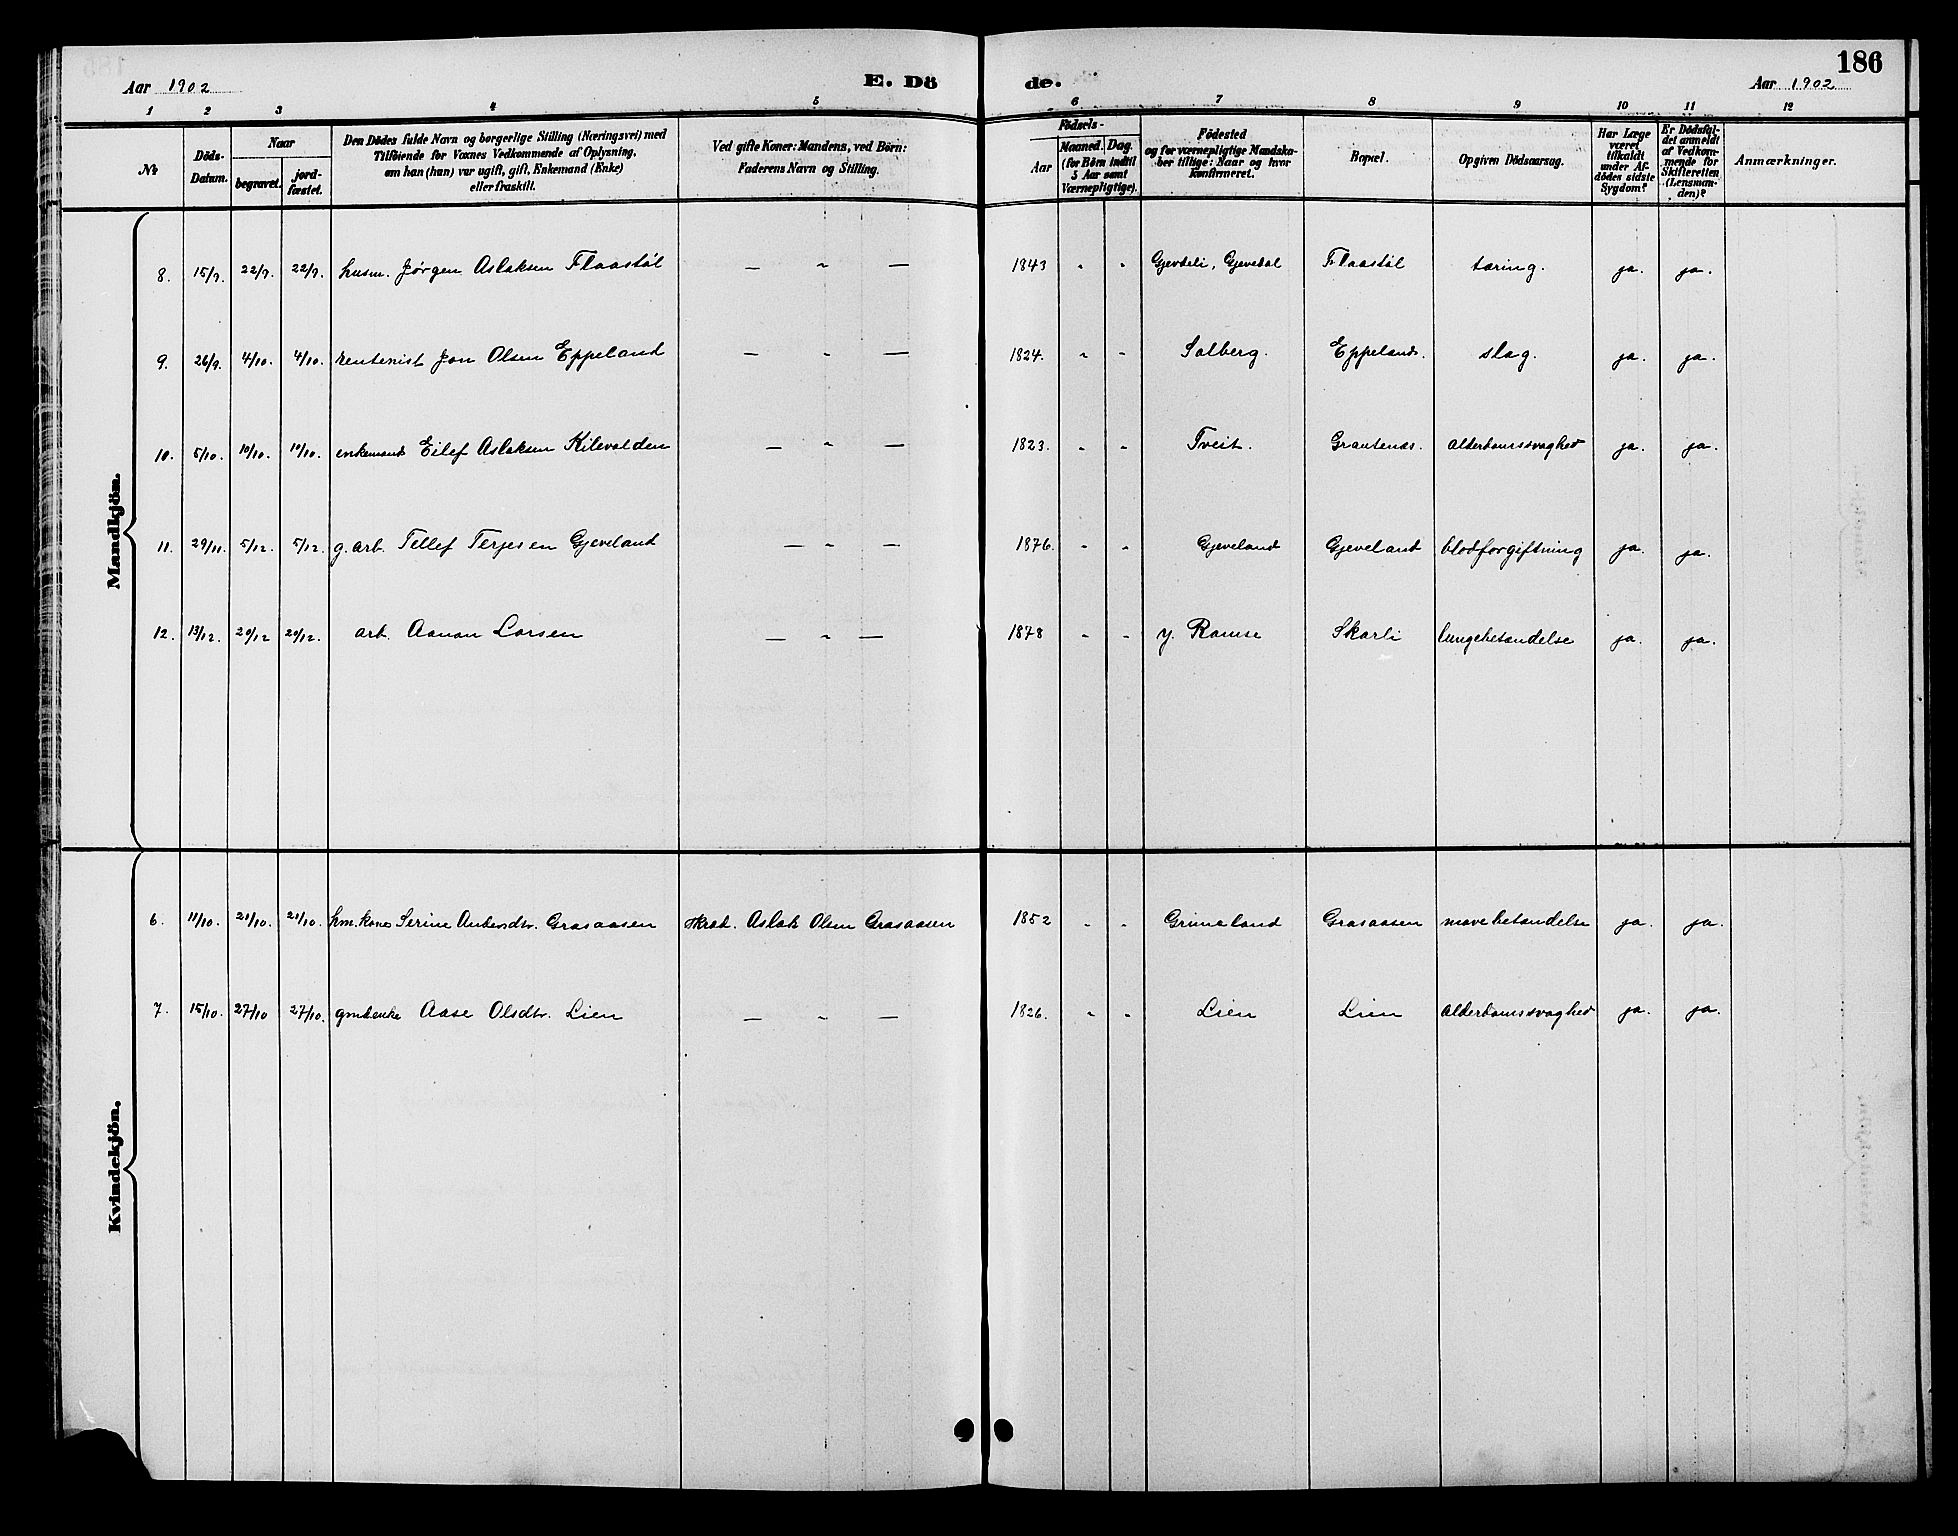 186
Aar 1902
E. Dö
de.
Aar 1902
1 2 3 4 5 6 7 8 9 10 11 12
№
Döds-
Datum.
Naar
begravet.
jord-
fæstet.
Den Dödes fulde Navn og borgerlige Stilling (Næringsvei) med
Tilföiende for Voxnes Vedkommende af Oplysning,
om han (hun) var ugift, gift, Enkemand (Enke)
eller fraskilt.
Ved gifte Koner: Mandens, ved Börn:
Faderens Navn og Stilling.
Födsels-
Aar
Maaned. Dag.
(for Börn indtil
5 Aar samt
Værnepligtige).
Födested
og for værnepligtige Mandska-
ber tillige: Naar og hvor
konfirmeret.
Bopæl.
Opgiven Dödsaarsag.
Har Læge
været
tilkaldt
under Af-
dödes sidste
Sygdom?
Er Dödsfal-
det anmeldt
af Vedkom-
mende for
Skifteretten
(Lensman-
den)?
Anmærkninger.
Mandkjön.
8. 15/9. 22/9. 22/9. husm. Jørgen Aslaksen Flaastøl — " — 1843 " " Gjevdeli, Gjevedal Flaastøl tæring. ja. ja.
9. 26/9. 4/10. 4/10. rentenist Jon Olsen Eppeland — " — 1824. " " Solberg. Eppeland. slag. ja. ja.
10. 5/10. 10/10. 10/10. enkemand Eilef Aslaksen Kilevolden — " — 1823. " " Tveit. Grautenæs. alderdomssvaghed ja. ja.
11. 29/11. 5/12. 5/12. g. arb. Tellef Terjesen Gjeveland — " — 1876. " " Gjeveland Gjeveland blodforgiftning ja. ja.
12. 13/12. 20/12 20/12. arb. Aanon Larsen — " — 1878 " " y. Ramse Skarli lungebetændelse ja. ja.
Kvindekjön.
6. 11/10. 21/10. 21/10. hm. kone Serine Andersdtr. Grasaasen skræd. Aslak Olsen Graasaasen 1852 " " Grimeland Grasaasen mavebetændelse ja. ja.
7. 15/10. 27/10 27/10. gmdenke Aase Olsdtr. Lien — " — 1826. " " Lien Lien alderdomssvaghed ja. ja.